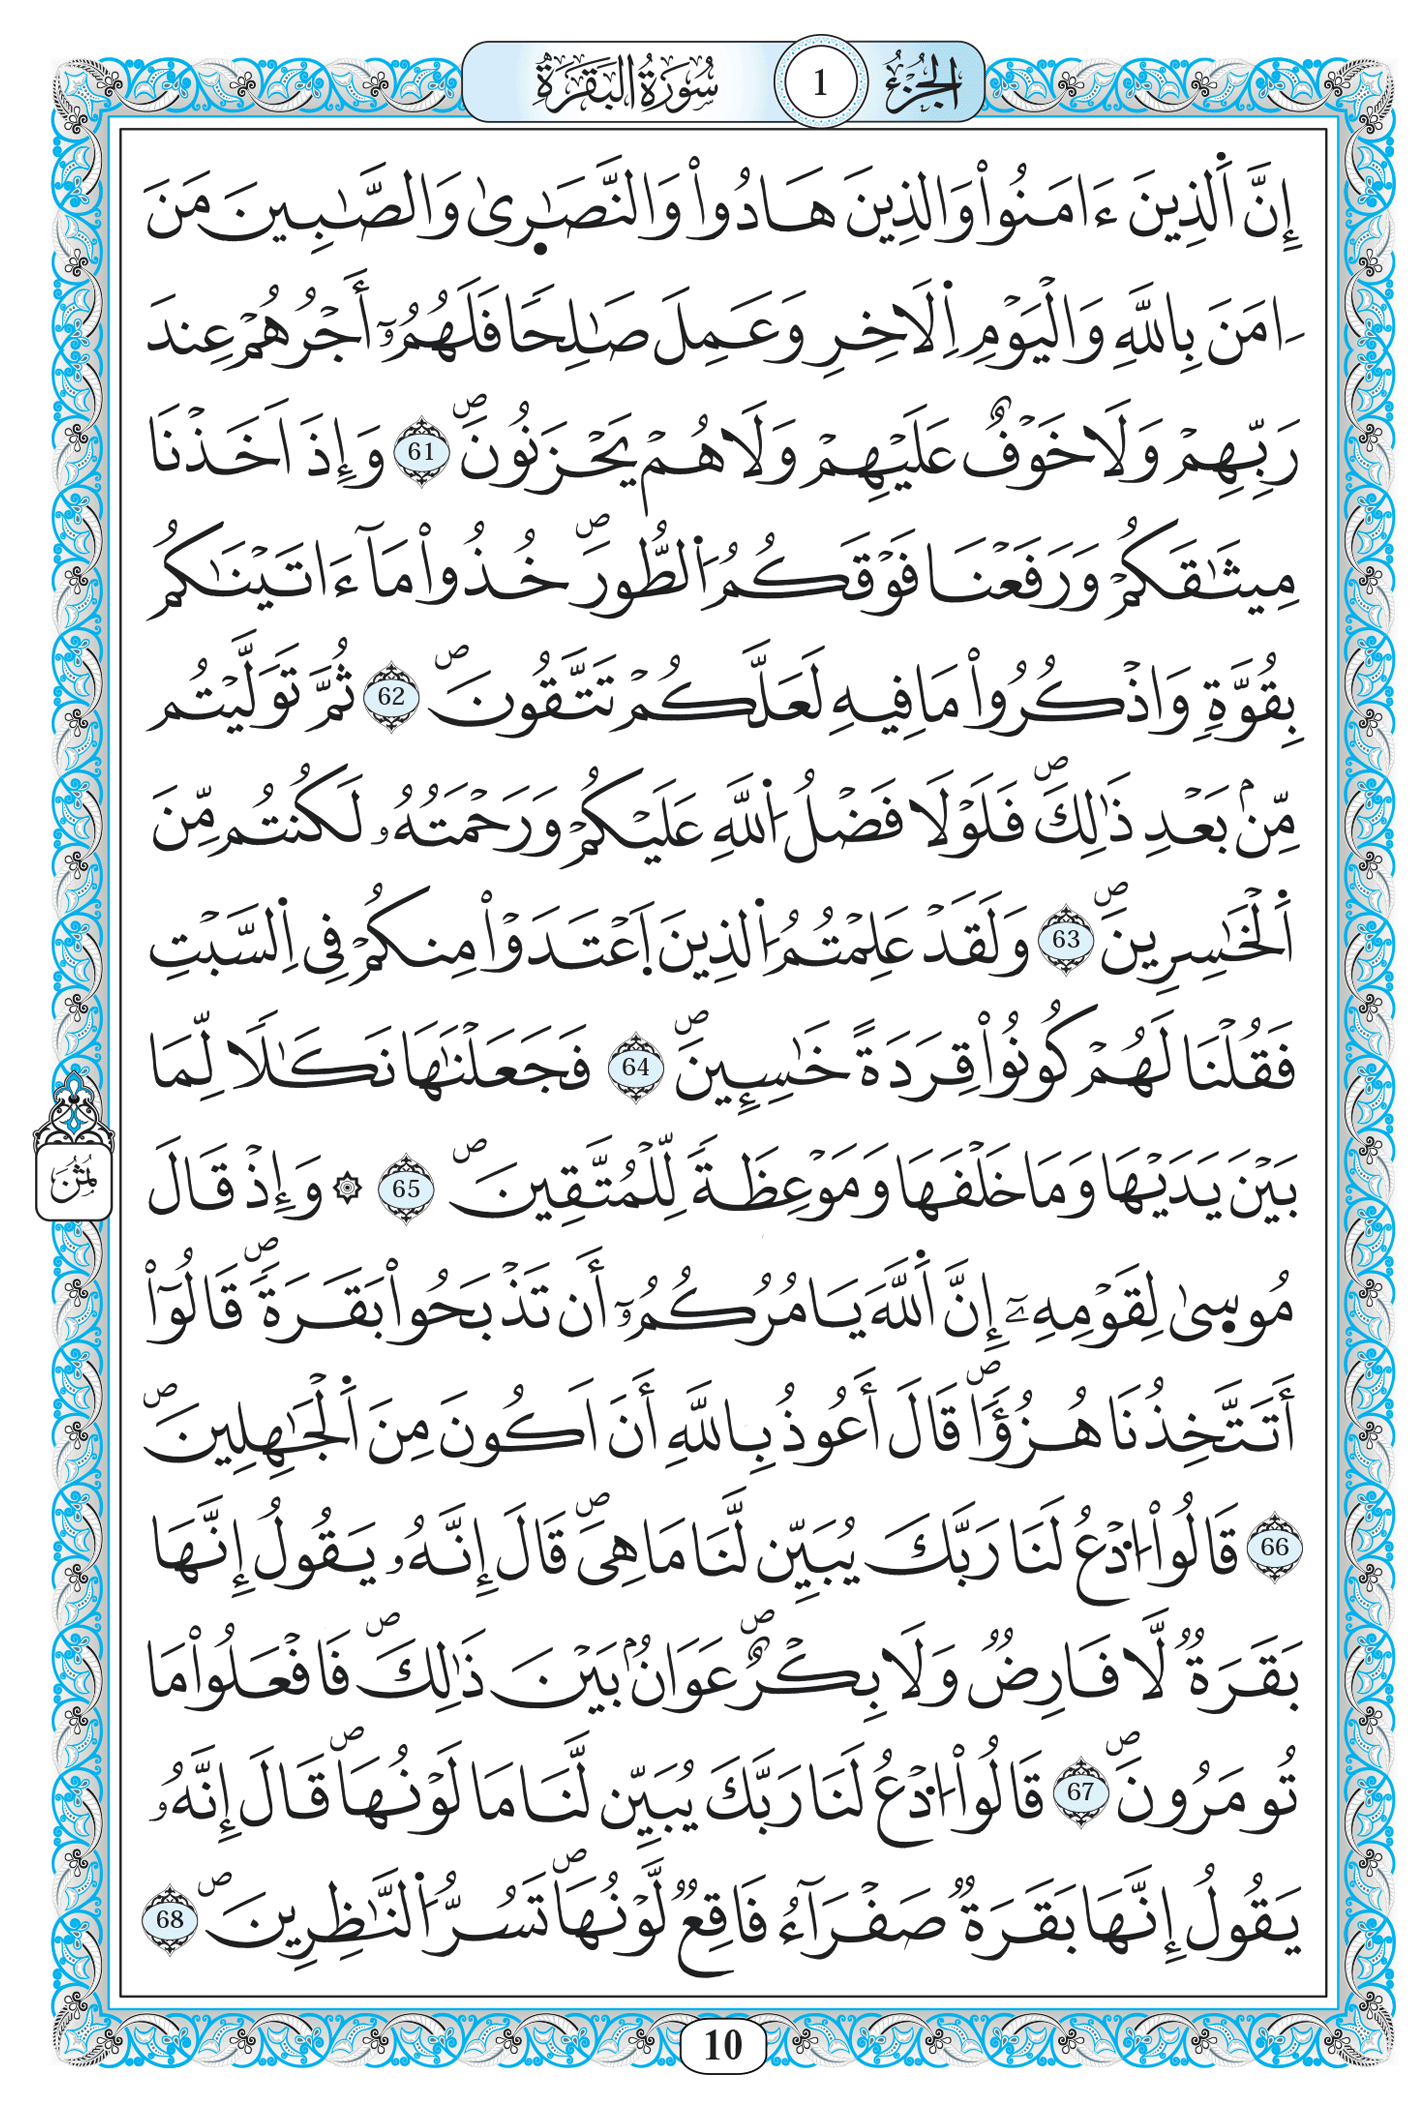 الجزء 1 سورة البقرة
إِنَّ اَ۬لذِينَ ءَامَنُواْ وَالذِينَ هَادُواْ وَالنَّصَٰر۪ىٰ وَالصَّٰبِـينَ مَنَ
ـ اٰمَنَ بِاللَّهِ وَالْيَوْمِ اِ۬لَاخِرِ وَعَمِلَ صَٰلِحاٗ فَلَهُمُۥٓ أَجْرُهُمْ عِندَ
رَبِّهِمْ وَلَا خَوْفٌ عَلَيْهِمْ وَلَا هُمْ يَحْزَنُونَۖ 61 وَإِذَ اَخَذْنَا
مِيثَٰقَكُمْ وَرَفَعْنَا فَوْقَكُمُ اُ۬لطُّورَۖ خُذُواْ مَآ ءَاتَيْنَٰكُم
بِقُوَّةٖ وَاذْكُرُواْ مَا فِيهِ لَعَلَّكُمْ تَتَّقُونَۖ 62 ثُمَّ تَوَلَّيْتُم
مِّنۢ بَعْدِ ذَٰلِكَۖ فَلَوْلَا فَضْلُ اُ۬للَّهِ عَلَيْكُمْ وَرَحْمَتُهُۥ لَكُنتُم مِّنَ
اَ۬لْخَٰسِرِينَۖ 63 وَلَقَدْ عَلِمْتُمُ اُ۬لذِينَ اَ۪عْتَدَوْاْ مِنكُمْ فِى اِ۬لسَّبْتِ
فَقُلْنَا لَهُمْ كُونُواْ قِرَدَةً خَٰسِـِٕينَۖ 64 فَجَعَلْنَٰهَا نَكَٰلاٗ لِّمَا
بَيْنَ يَدَيْهَا وَمَا خَلْفَهَا وَمَوْعِظَةٗ لِّلْمُتَّقِينَۖ 65 ۞ وَإِذْ قَالَ
مُوس۪ىٰ لِقَوْمِهِۦٓ إِنَّ اَ۬للَّهَ يَامُرُكُمُۥٓ أَن تَذْبَحُواْ بَقَرَةٗۖ قَالُوٓاْ
أَتَتَّخِذُنَا هُزُؤاٗۖ قَالَ أَعُوذُ بِاللَّهِ أَنَ اَكُونَ مِنَ اَ۬لْجَٰهِلِينَۖ
66 قَالُواْ اُ۟دْعُ لَنَا رَبَّكَ يُبَيِّن لَّنَا مَا هِىَۖ قَالَ إِنَّهُۥ يَقُولُ إِنَّهَا
بَقَرَةٞ لَّا فَارِضٞ وَلَا بِكْرٌۖ عَوَانُۢ بَيْنَ ذَٰلِكَۖ فَافْعَلُواْ مَا
تُومَرُونَۖ 67 قَالُواْ اُ۟دْعُ لَنَا رَبَّكَ يُبَيِّن لَّنَا مَا لَوْنُهَاۖ قَالَ إِنَّهُۥ
يَقُولُ إِنَّهَا بَقَرَةٞ صَفْرَآءُ فَاقِعٞ لَّوْنُهَاۖ تَسُرُّ اُ۬لنَّٰظِرِينَۖ 68
ثمن
10